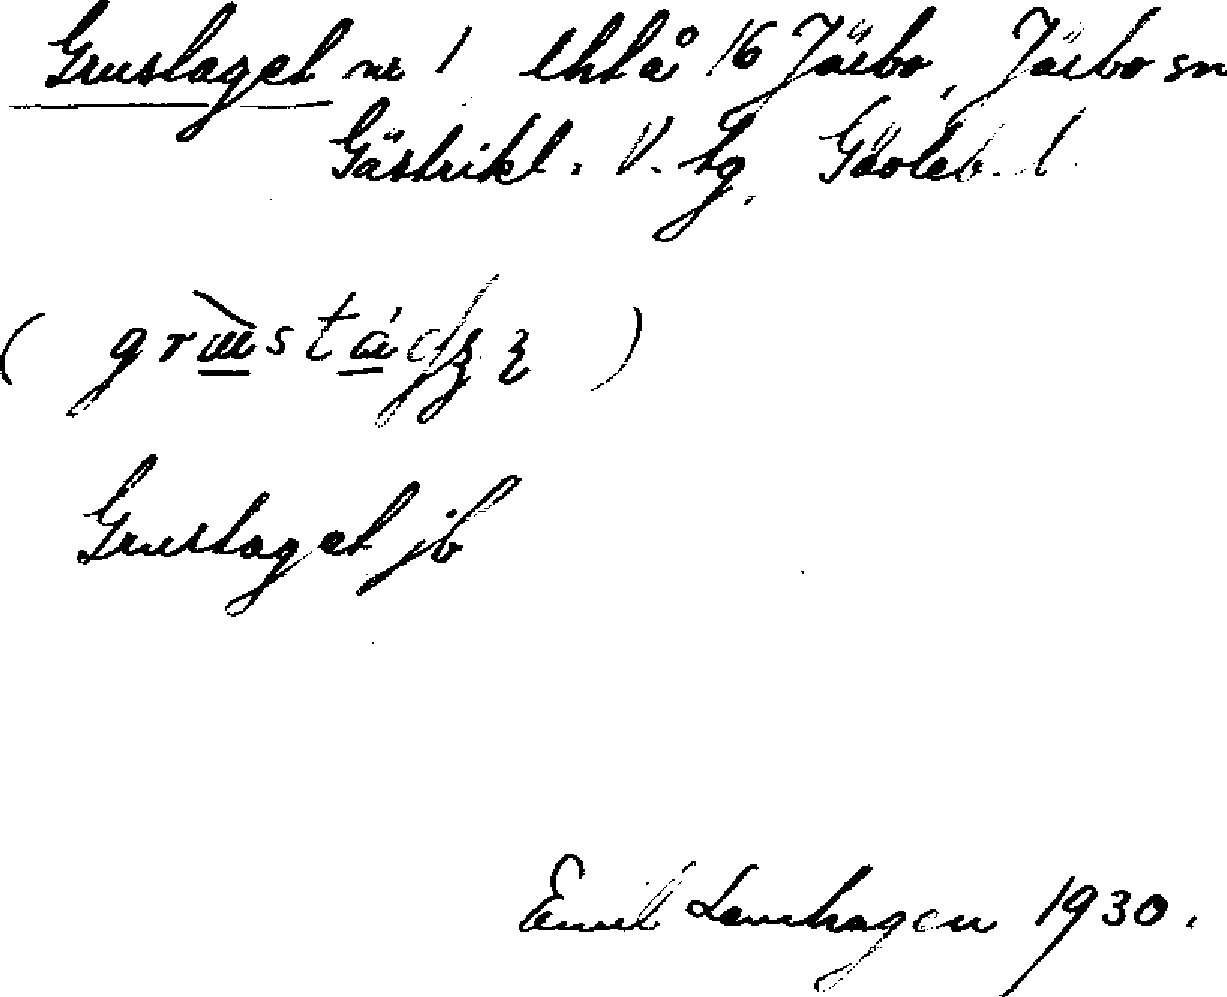 Grustaget nr 1 lhtå 16 Järbo, Järbo sn
Gästrikl. V. tg, Gävleb. l.
Grustaget jb
Emil Lamhagen 1930.